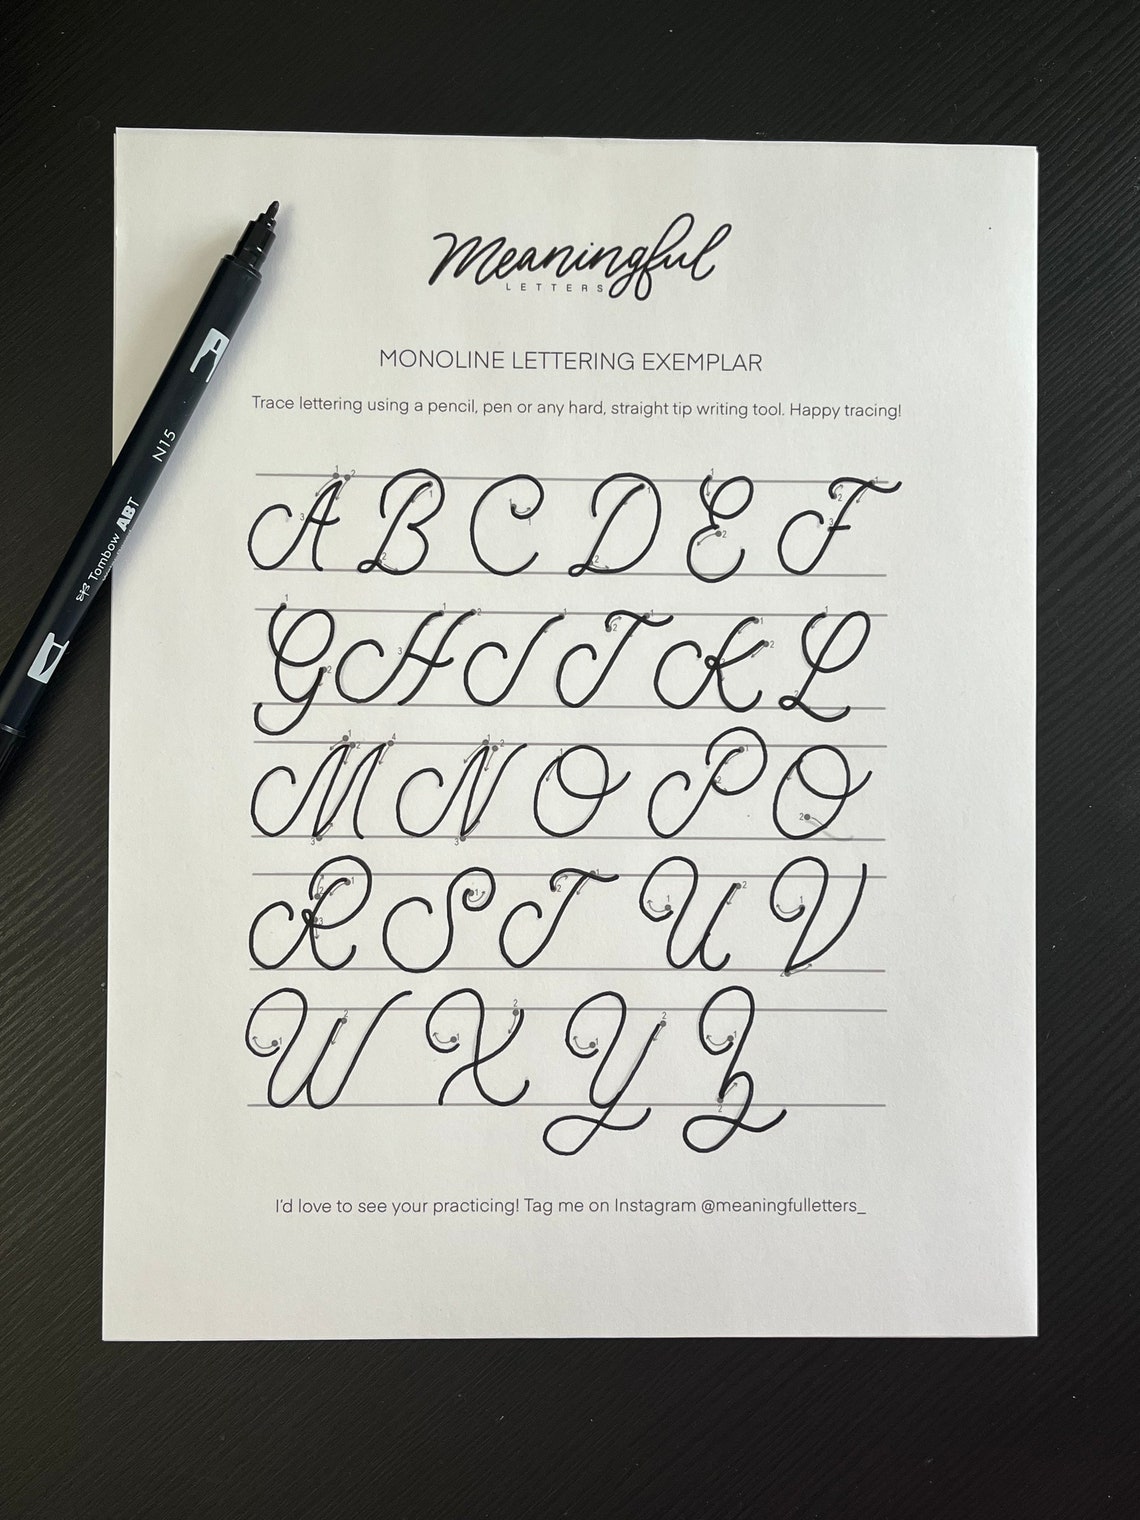 Meaningful
LETTERS
MONOLINE LETTERING EXEMPLAR
Trace lettering using a pencil, pen or any hard, straight tip writing tool. Happy tracing!
A B C D E F
G H I J K L
M N O P Q
R S T U V
W X Y Z
I'd love to see your practicing! Tag me on Instagram @meaningfulletters_
N15
Tombow ABT